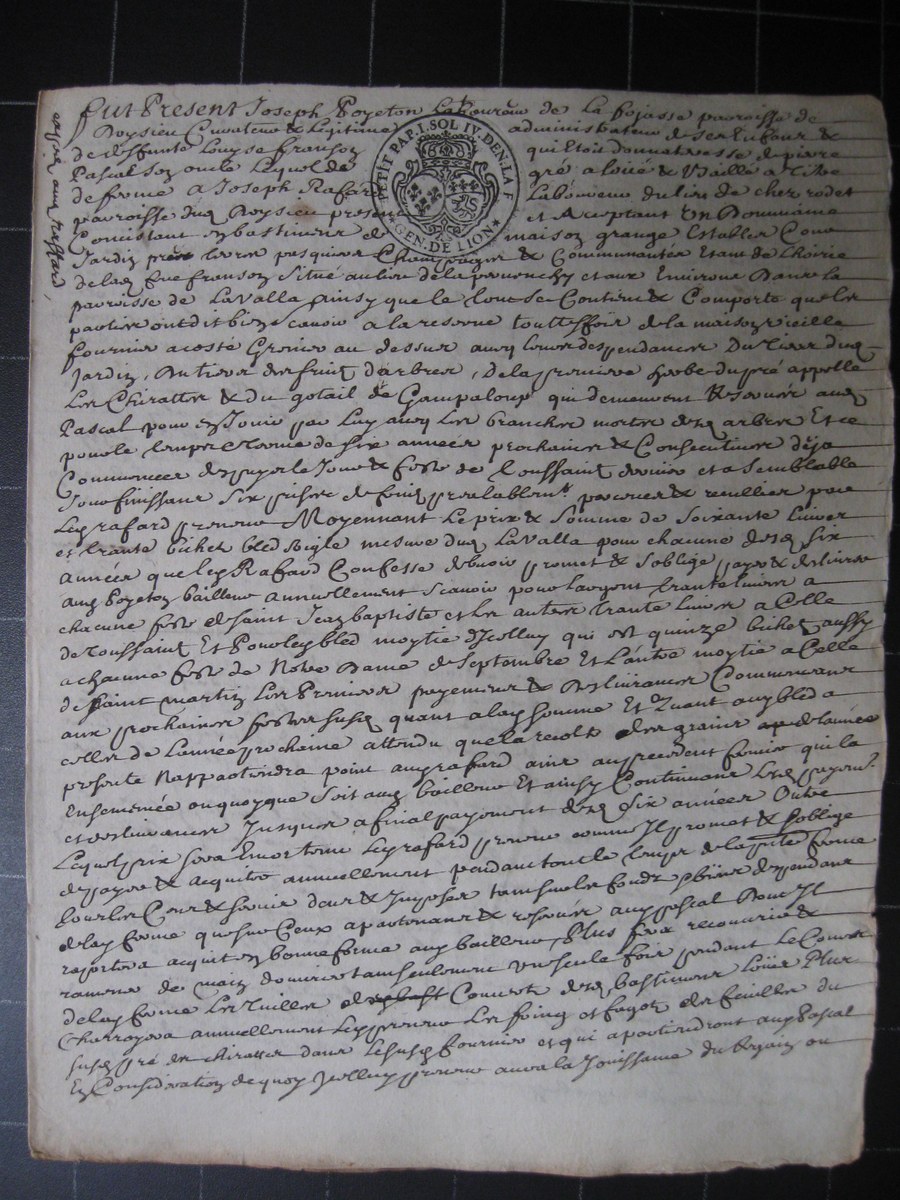 fut Present Joseph Poyeton Laboureur de la Bojasse parroisse de
Doysieu Curateur & Legitime administrateur de ses Enfans &
de deffunte Louyse franson qui Etoit donnatresse de pierre
Pascal son oncle Lequel de gré a loüé & Baillé a titre
de ferme a Joseph Rafard Laboureur du lieu de cher rodet
parroisse dud Doysieu present et Acceptant Un Dommaine
Concistant en bastiments de maison grange Estables Cour
Jardin prés terres pasquiers Champeages & Communautés Etant de l'hoirie
de lad feue franson Situé au lieu de la et aux Environs Dans la
parroisse de Lavalla ainsy que le tout se Contient & Comporte que les
parties ont dit bien scavoir a la reserve touttesfois de la maison vieille
fournier a costé Grenier au dessus avec leurs despendances Du tiers dud
Jardin, Du tiers des fruits d'arbres, de la premiere herbe du pré appellé
Les Chirattes & du gotail de Gampaloup qui demeurent Reservés aud
Pascal pour en Jouir par luy avec Les branches mortes desd arbres Et ce
pour le temps et terme de six années prochaines & Consecutives déja
Commencées depuis le Jour & feste de Toussaint dernier et a Semblable
Jour finissant six prises de fruits prealablemt perceues & reculliés par
Led rafard preneur Moyennant Le prix & Somme de Soixante Livres
et trante bichets bled seigle mesure dud Lavalla pour chacune desd six
années que led Rafard Confesse debvoir promet & soblige payer & deslivrer
aud Poyeton bailleur annuellement scavoir pour largent trante livres a
chacune feste de Saint Jean baptiste et les autres trante livres a Celle
de Toussaint Et pour led bled moytié d'Icelluy qui est quinze bichets aussy
a chacune feste de Notre Dame de Septembre Et Lautre moytié a Celle
de Saint martin Les Premiers payements & Deslivrances Commencant
aux prochaines festes susd quant a lad somme Et Quant aud bled a
celles de Lannée prochaine attendu que la recolte des grains de lannée
presente Nappartiendra point aud rafard ains au precedent fermier qui la
Ensemencée ou quoyque soit aud bailleur Et ainsy Continuant Lesd payemts
et deslivrances Jusques a final payement desd Six années Outre
Lequel prix sera Encor tenu Led rafard preneur comme Il promet & soblige
de payer & acquiter annuellement pendant tout le temps de la pnte ferme
tous les Cens & servis deus & Imposés tant sur les fonds & biens deppendant
de lad ferme que sur Ceux apartenant & reservés aud Pascal Dont Il
raportera acquit en bonne forme aud bailleur, Plus fera recouvrir &
ramener de main d'ouvrier tant seulement Une seule fois pendant Le Cours
de lad ferme Les Tuilles Couverts desd bastiments loüés Plus
Charroyera annuellement Led preneur Les foins et fagots de feuilles du
susd pré des chirattes dans Le susd fournier et qui apartiendront aud Pascal
En Consideration de quoy Icelluy preneur aura la Jouissance du Regain ou
PETIT PAP. 1. SOL IV. DEN. LA F
GEN. DE LION